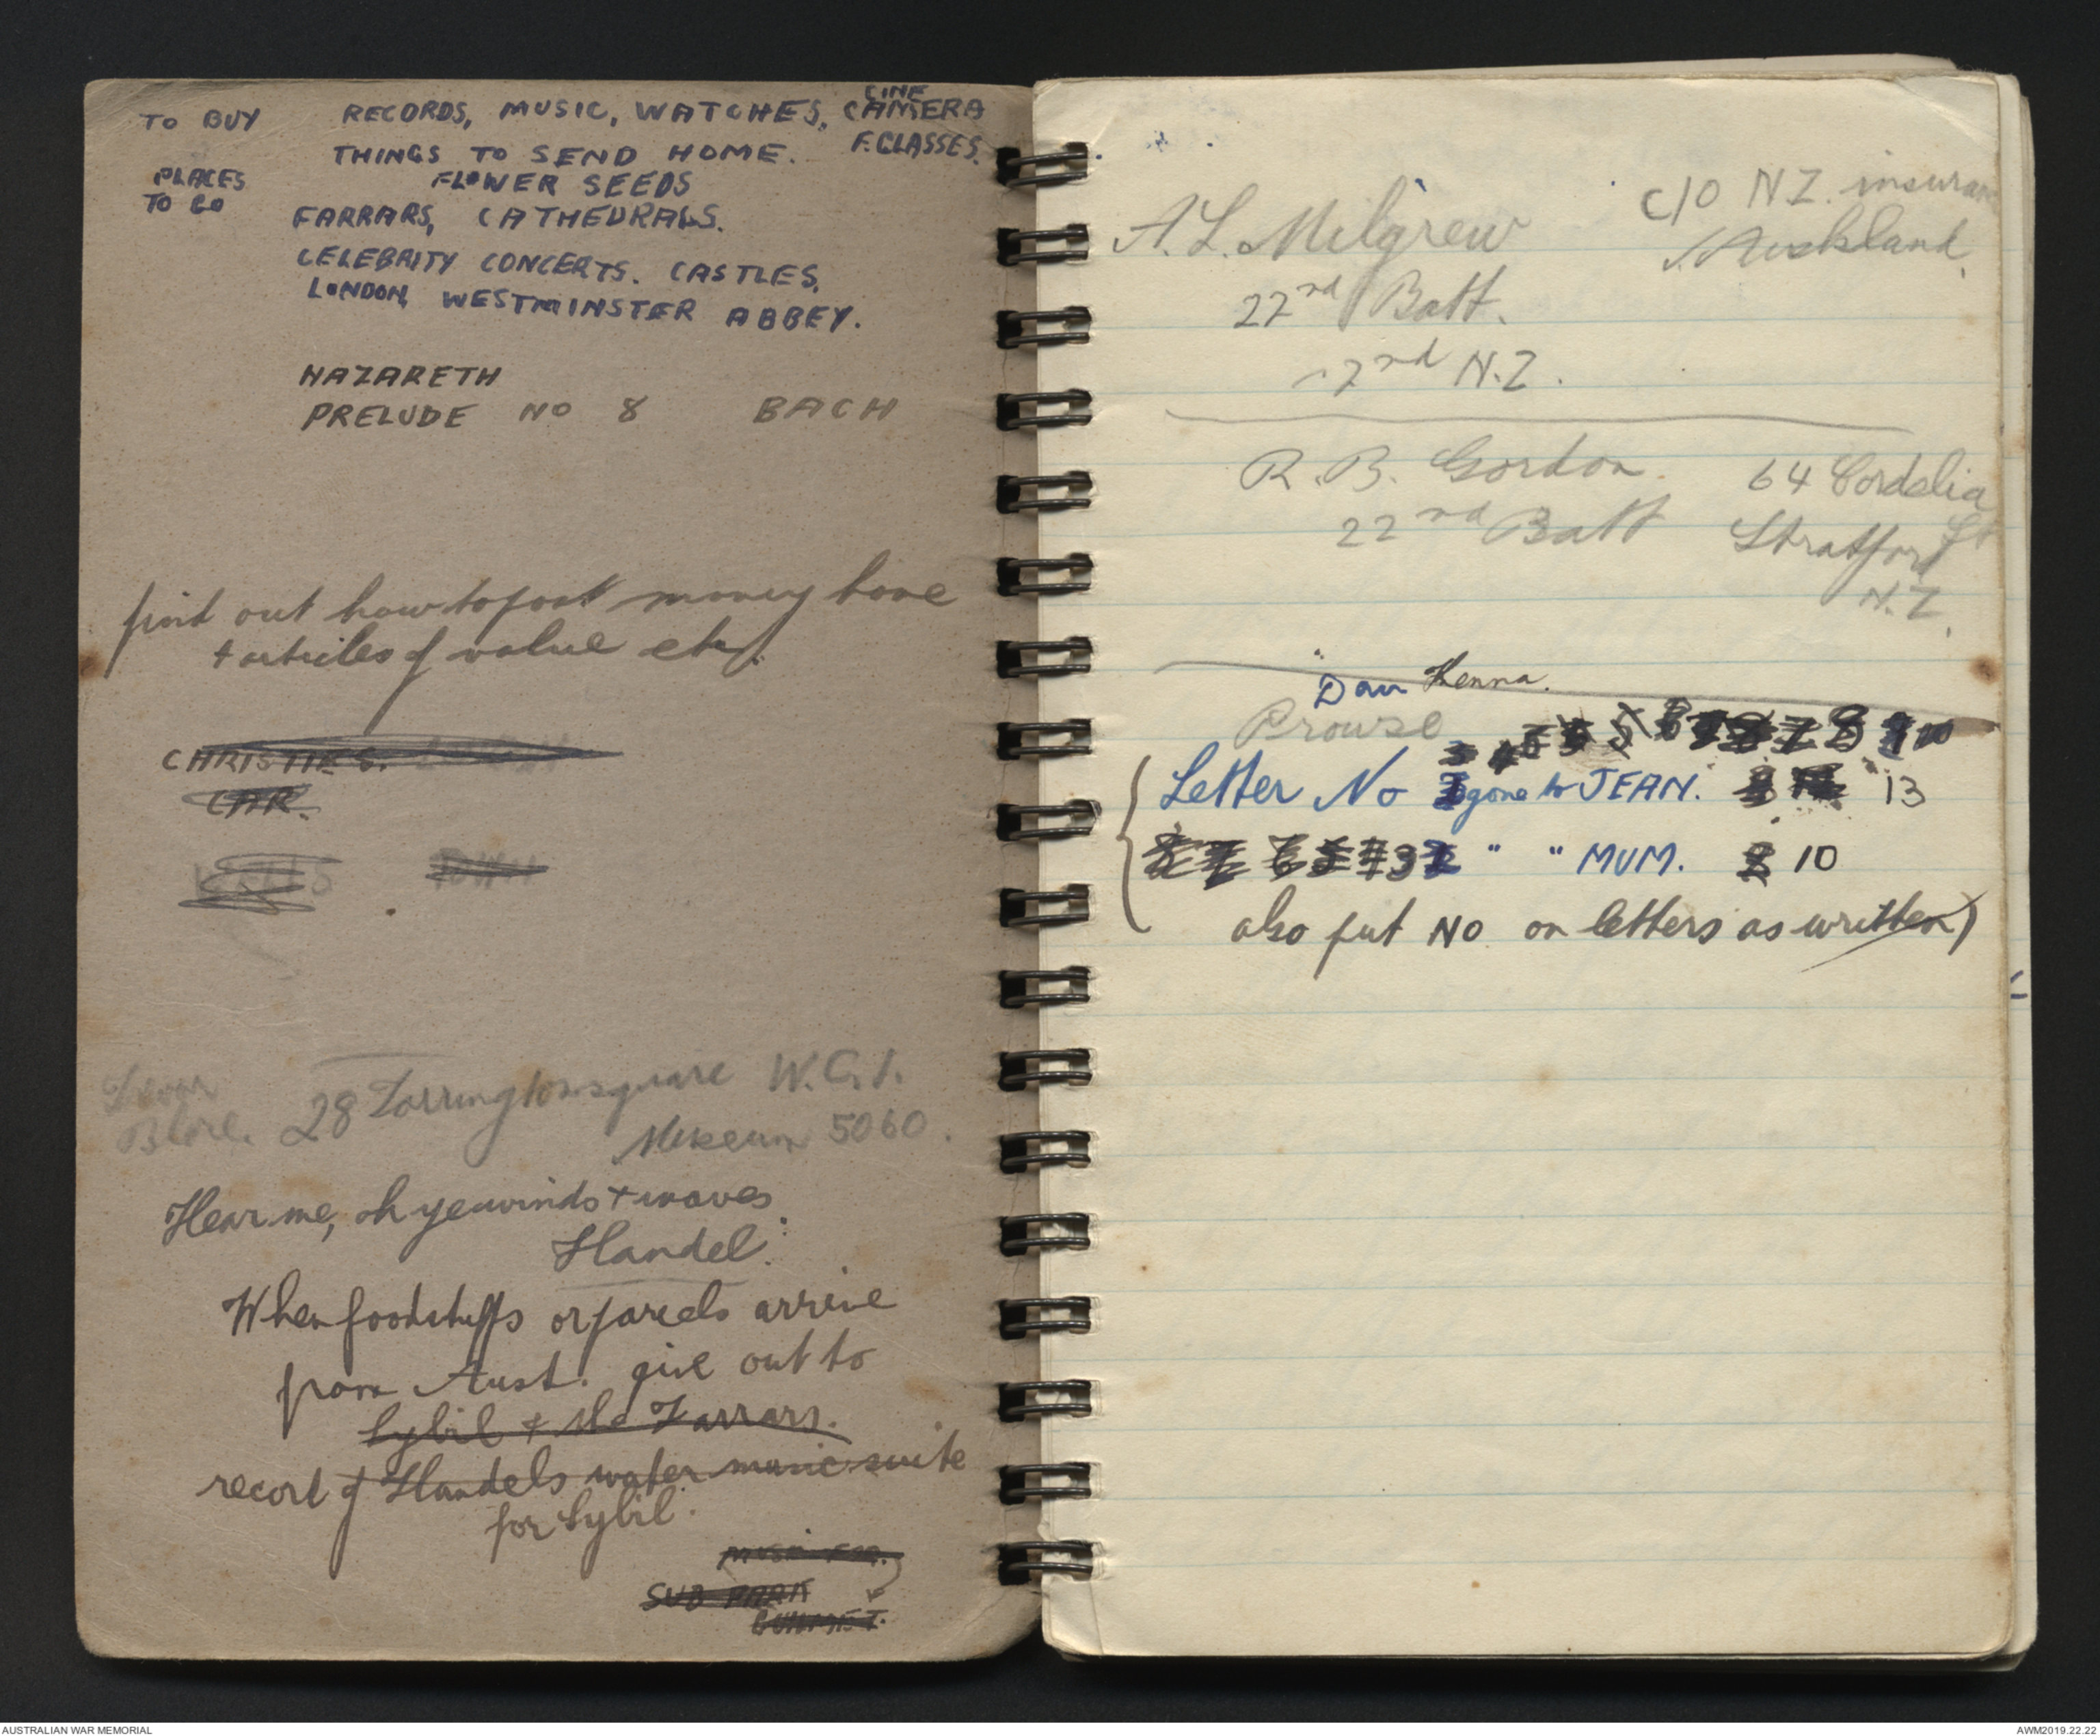 TO BUY RECORDS, MUSIC, WATCHES, CINE CAMERA
THINGS TO SEND HOME. F. GLASSES.
FLOWER SEEDS
PLACES
TO GO
FARRARS, CATHEDRALS.
CELEBRITY CONCERTS. CASTLES,
LONDON, WESTMINSTER ABBEY.
NAZARETH
PRELUDE NO 8 BACH
find out how to post money home
+ articles of value etc.
CHRISTIES.
CAR.
28 Torrington square W.C.1.
Museum 5060.
Hear me, oh ye winds + waves
Handel.
When foodstuffs or parcels arrive
from Aust. give out to
Sybil + the Farrars.
record of Handels water music suite
for Sybil.
SUB PARA
A.L. Milgrew c/o N.Z. insuran
Auckland.
22nd Batt.
2nd N.Z.
R.B. Gordon 64 Cordelia St
22nd Batt Stratford
N.Z.
Dau Kenna.
Prowse
3 4 5 8 10
Letter No gone to JEAN. 13
" " MUM. 10
also put NO on letters as written)
AUSTRALIAN WAR MEMORIAL
AWM2019.22.22